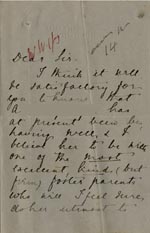 14
Dear Sir.
I think it will
be satisfactory for
you to know that
A has
at present been be
having well, & I
believe her to be with
one of the most
excellent, kind, (but
firm) foster parents
who will I feel sure,
do her utmost to